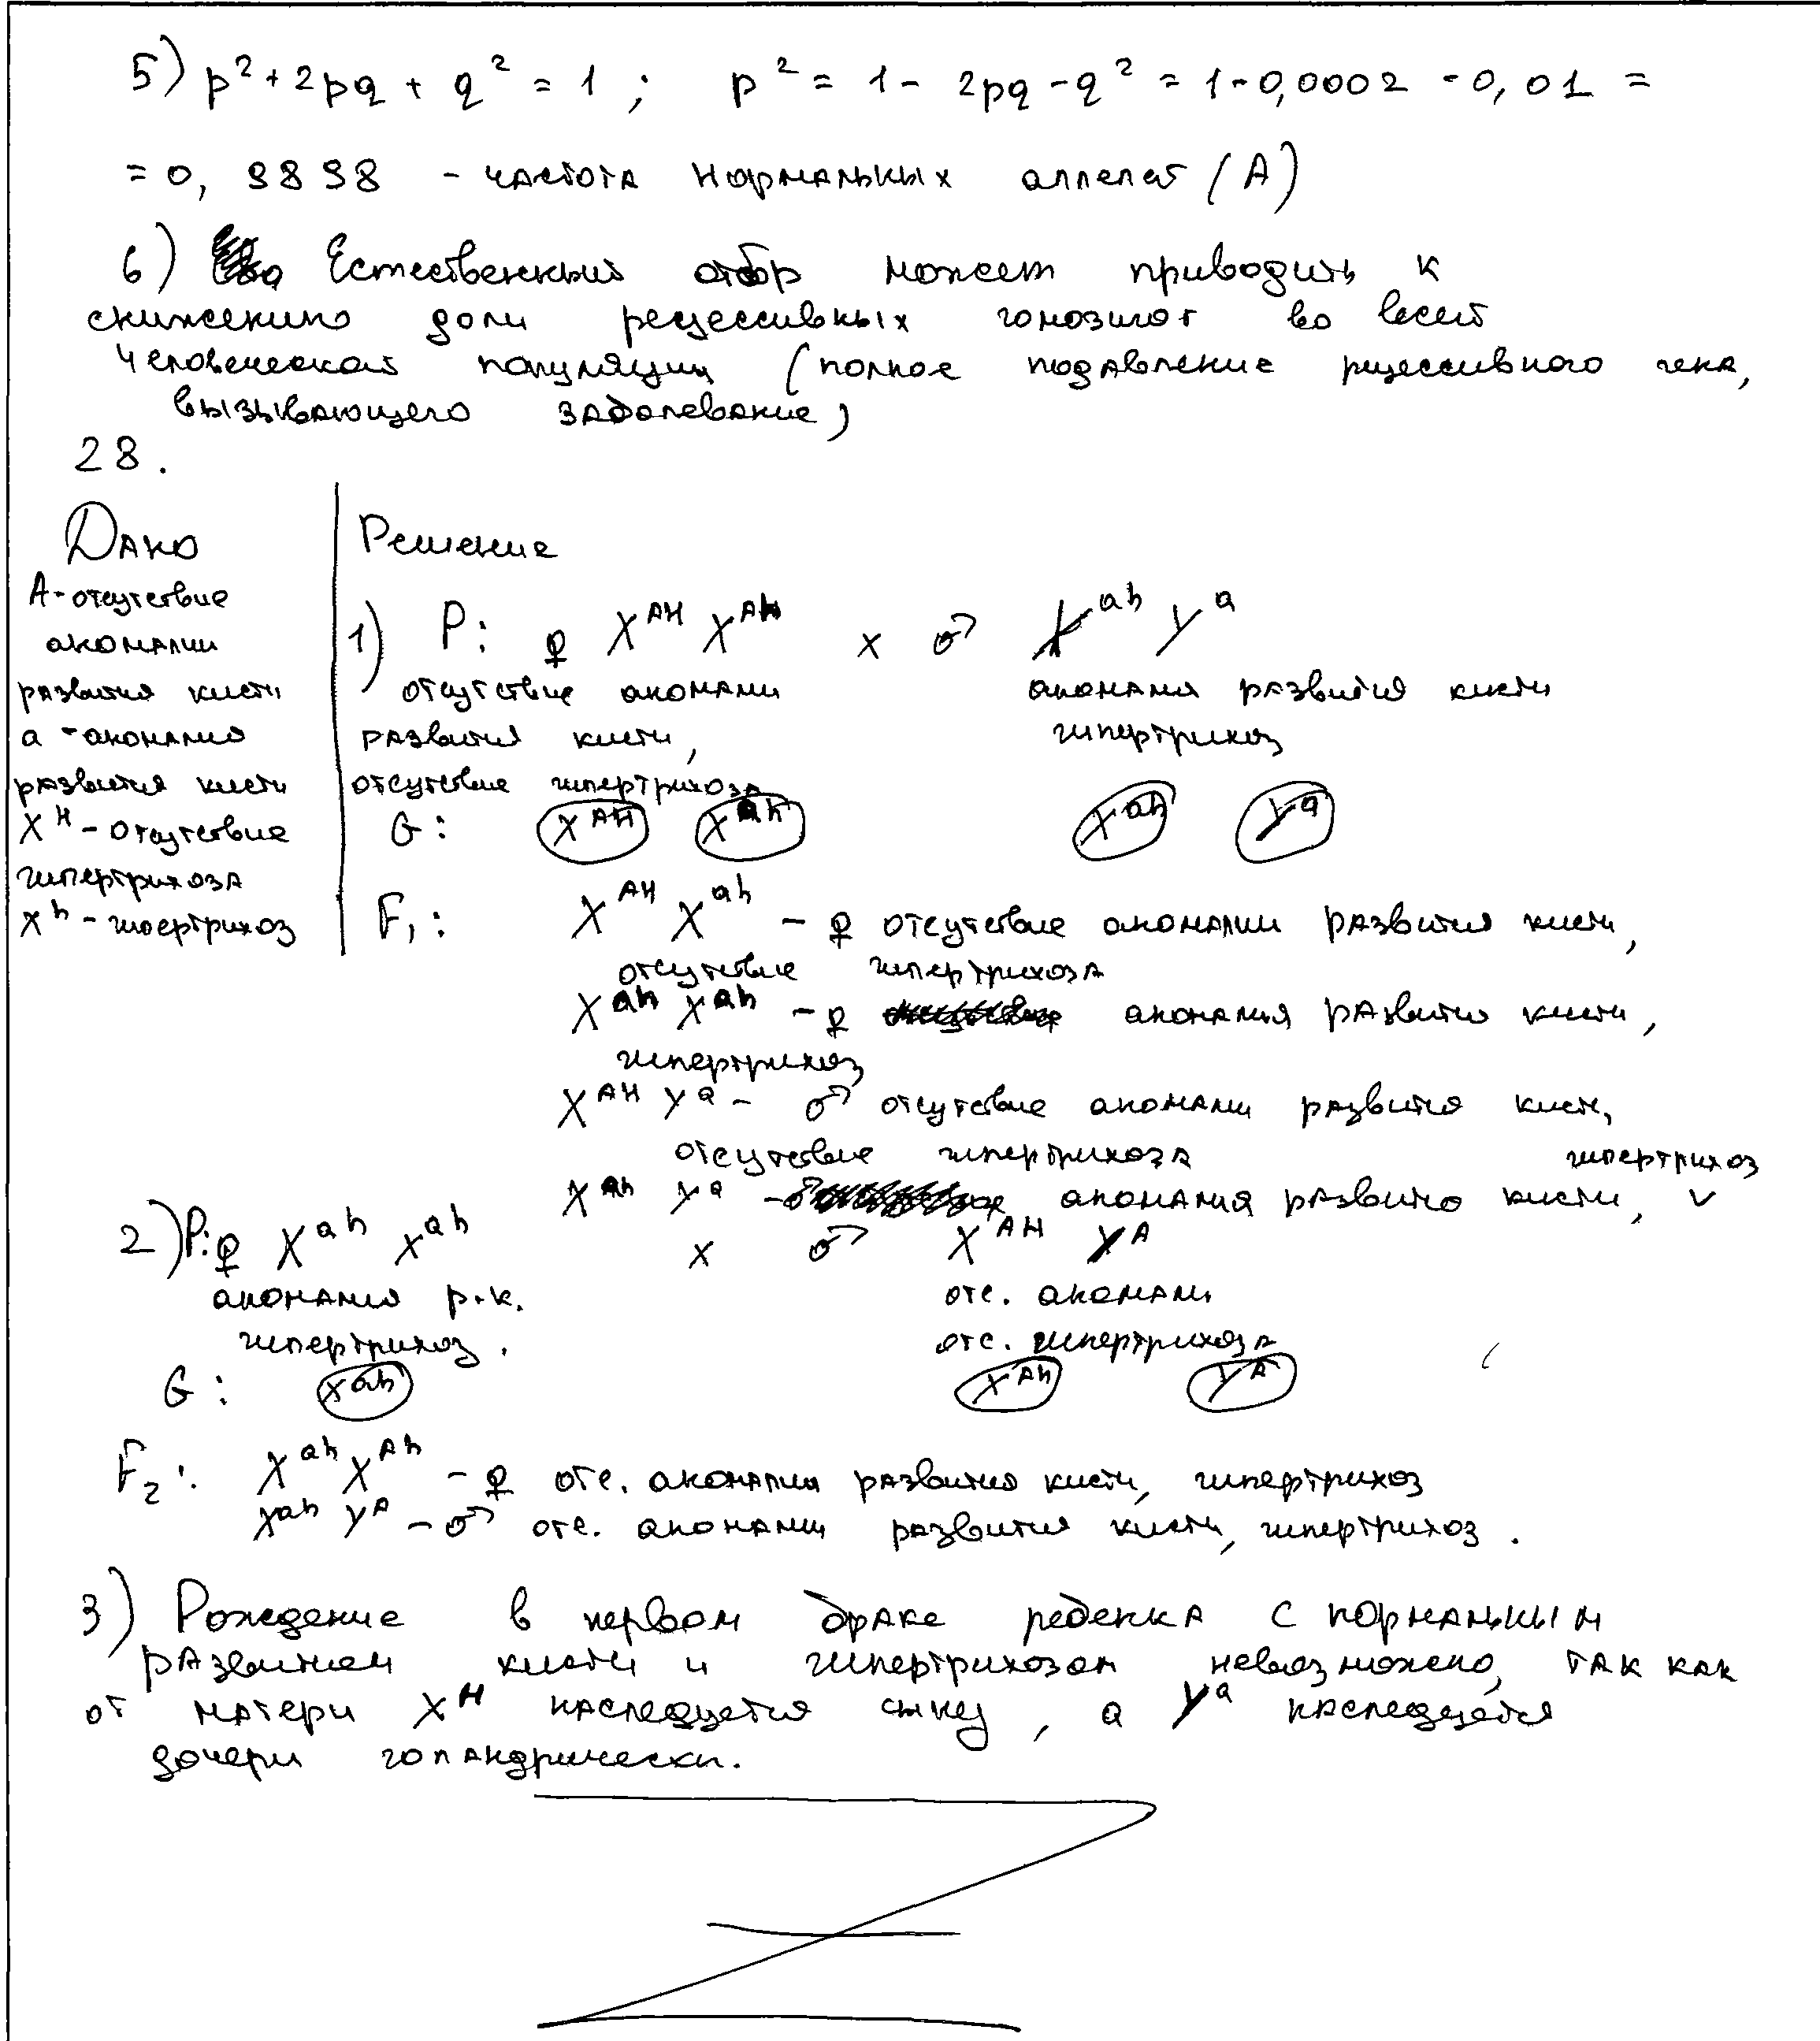 5) p² + 2pq + q² = 1 ; p² = 1 - 2pq - q² = 1 - 0,0002 - 0,01 =
= 0, 9898 - частота нормальных аллелей (A)
6) Естественный отбор может приводить к
снижению доли рецессивных гомозигот во всей
человеческой популяции (полное подавление рецессивного гена,
вызывающего заболевание)
28.
Дано
A - отсутствие
аномалии
развития кисти
a - аномалия
развития кисти
X^H - отсутствие
гипертрихоза
X^h - гипертрихоз
Решение
1) P: ♀ X^AH X^Ah x ♂ X^ah Y^a
отсутствие аномали аномалия развития кисти
развития кисти, гипертрихоз
отсутствие гипертрихоза
G: X^AH X^ah X^ah Y^a
F₁: X^AH X^ah - ♀ отсутствие аномалии развития кисти,
отсутствие гипертрихоза
X^ah X^ah - ♀ аномалия развития кисти,
гипертрихоз
X^AH Y^a - ♂ отсутствие аномали развития кисти,
отсутствие гипертрихоза
X^ah Y^a - аномалия развития кисти, гипертрихоз
2) P: ♀ X^ah X^ah x ♂ X^AH Y^A
аномалия р.к. отс. аномали
гипертрихоз. отс. гипертрихоза
G: X^ah X^Ah Y^A
F₂: X^ah X^Ah - ♀ отс. аномалии развития кисти, гипертрихоз
X^ah Y^A - ♂ отс. аномалии развития кисти, гипертрихоз.
3) Рождение в первом браке ребенка с нормальным
развитием кисти и гипертрихозом невозможно, так как
от матери X^H наследуется сыну, а Y^a наследуется
дочери голандрически.